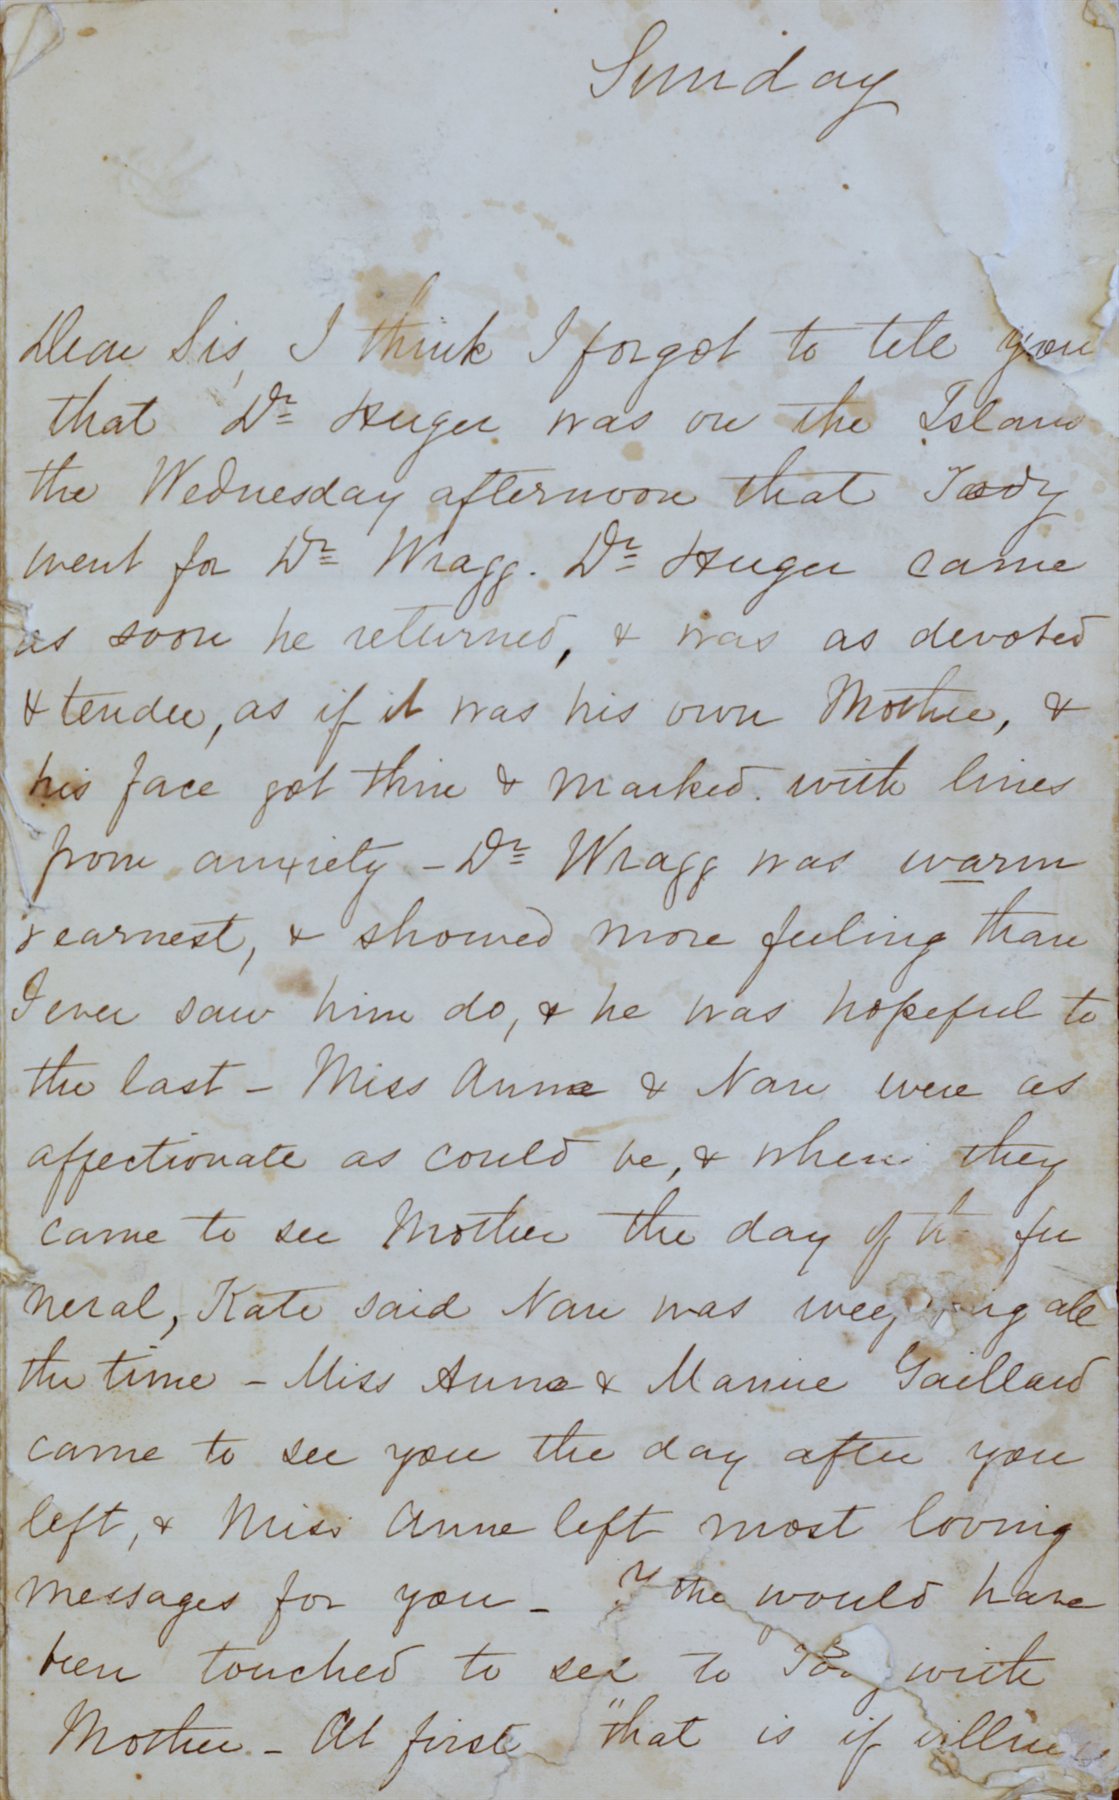 Sunday
Dear Sis, I think I forgot to tell you
that Dr Huger was on the Island
the Wednesday afternoon that Tody
went for Dr Wragg. Dr Huger came
as soon he returned, & was as devoted
& tender, as if it was his own Mother, &
his face got thin & marked with lines
from anxiety - Dr Wragg was warm
& earnest, & showed more feeling than
I ever saw him do, & he was hopeful to
the last - Miss Anne & Nan were as
affectionate as could be, & when they
came to see Mother the day of the fu
neral, Kate said Nan was weeping all
the time - Miss Anne & Mannie Gaillard
came to see you the day after you
left, & Miss Anne left most loving
messages for you - would have
been touched to see with
Mother - At first "that is if